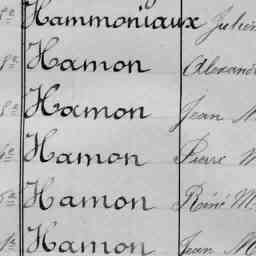 Hammoniaux
Hamon
Hamon Jean M
Hamon Pierre M
Hamon René M
Hamon Jean M